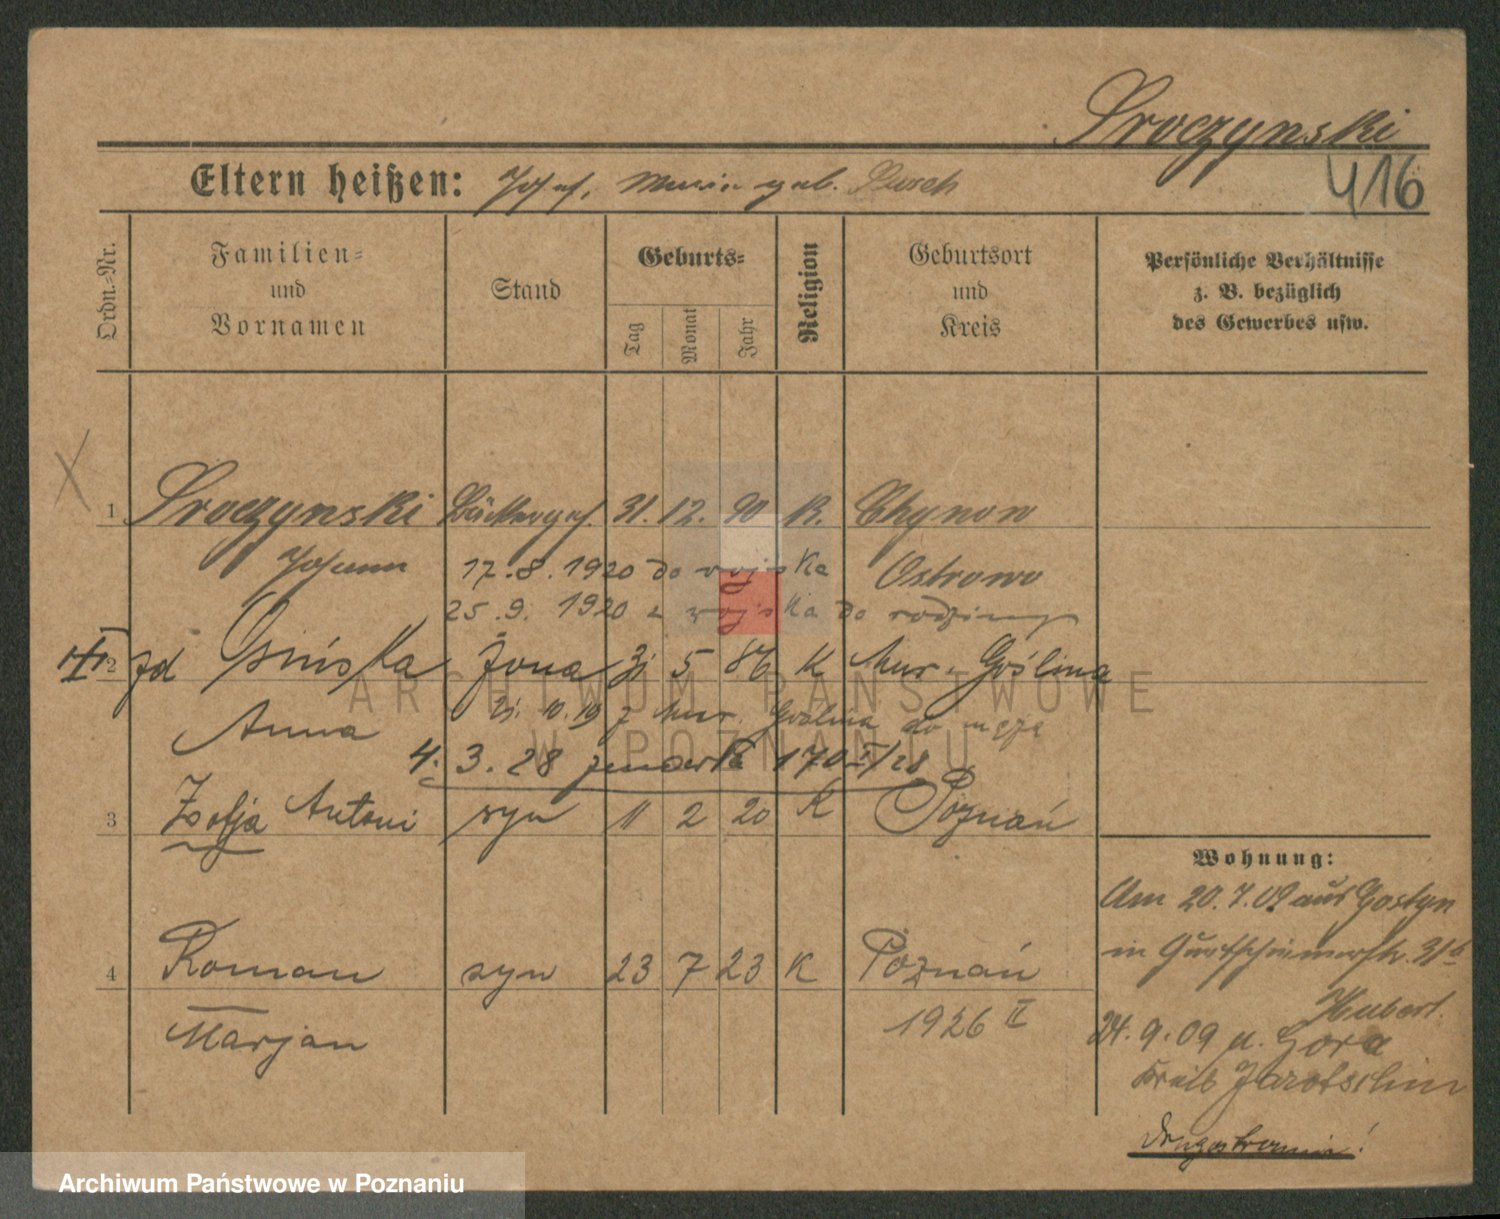 Sroczynski
416
Eltern heißen: Josef, Maria geb.
Ordn.-Nr.
Familien-
und
Vornamen
Stand
Geburts-
Tag
Monat
Jahr
Religion
Geburtsort
und
Kreis
Persönliche Verhältnisse
z. B. bezüglich
des Gewerbes usw.
X
1 Sroczynski Bäckerges. 31. 12. 90 K. Chynow
Johann 17.8.1920 do wojska Ostrowo
25.9.1920 z wojska do rodziny
2 zd Osińska żona 31 5 86 K Mur. Goślina
Anna 10.19 z Mur. Goślina do męża
4. 3. 28 zmarła 170 /28
3 Zofja Antoni syn 11 2 20 K Poznań
4 Roman syn 23 7 23 K Poznań
Marjan 1926 II
Wohnung:
Am 20.7.09 aus Gostyn
in 31b
Hubert.
24.9.09 n. Gora
Kreis Jarotschin
ARCHIWUM PAŃSTWOWE
W POZNANIU
Archiwum Państwowe w Poznaniu